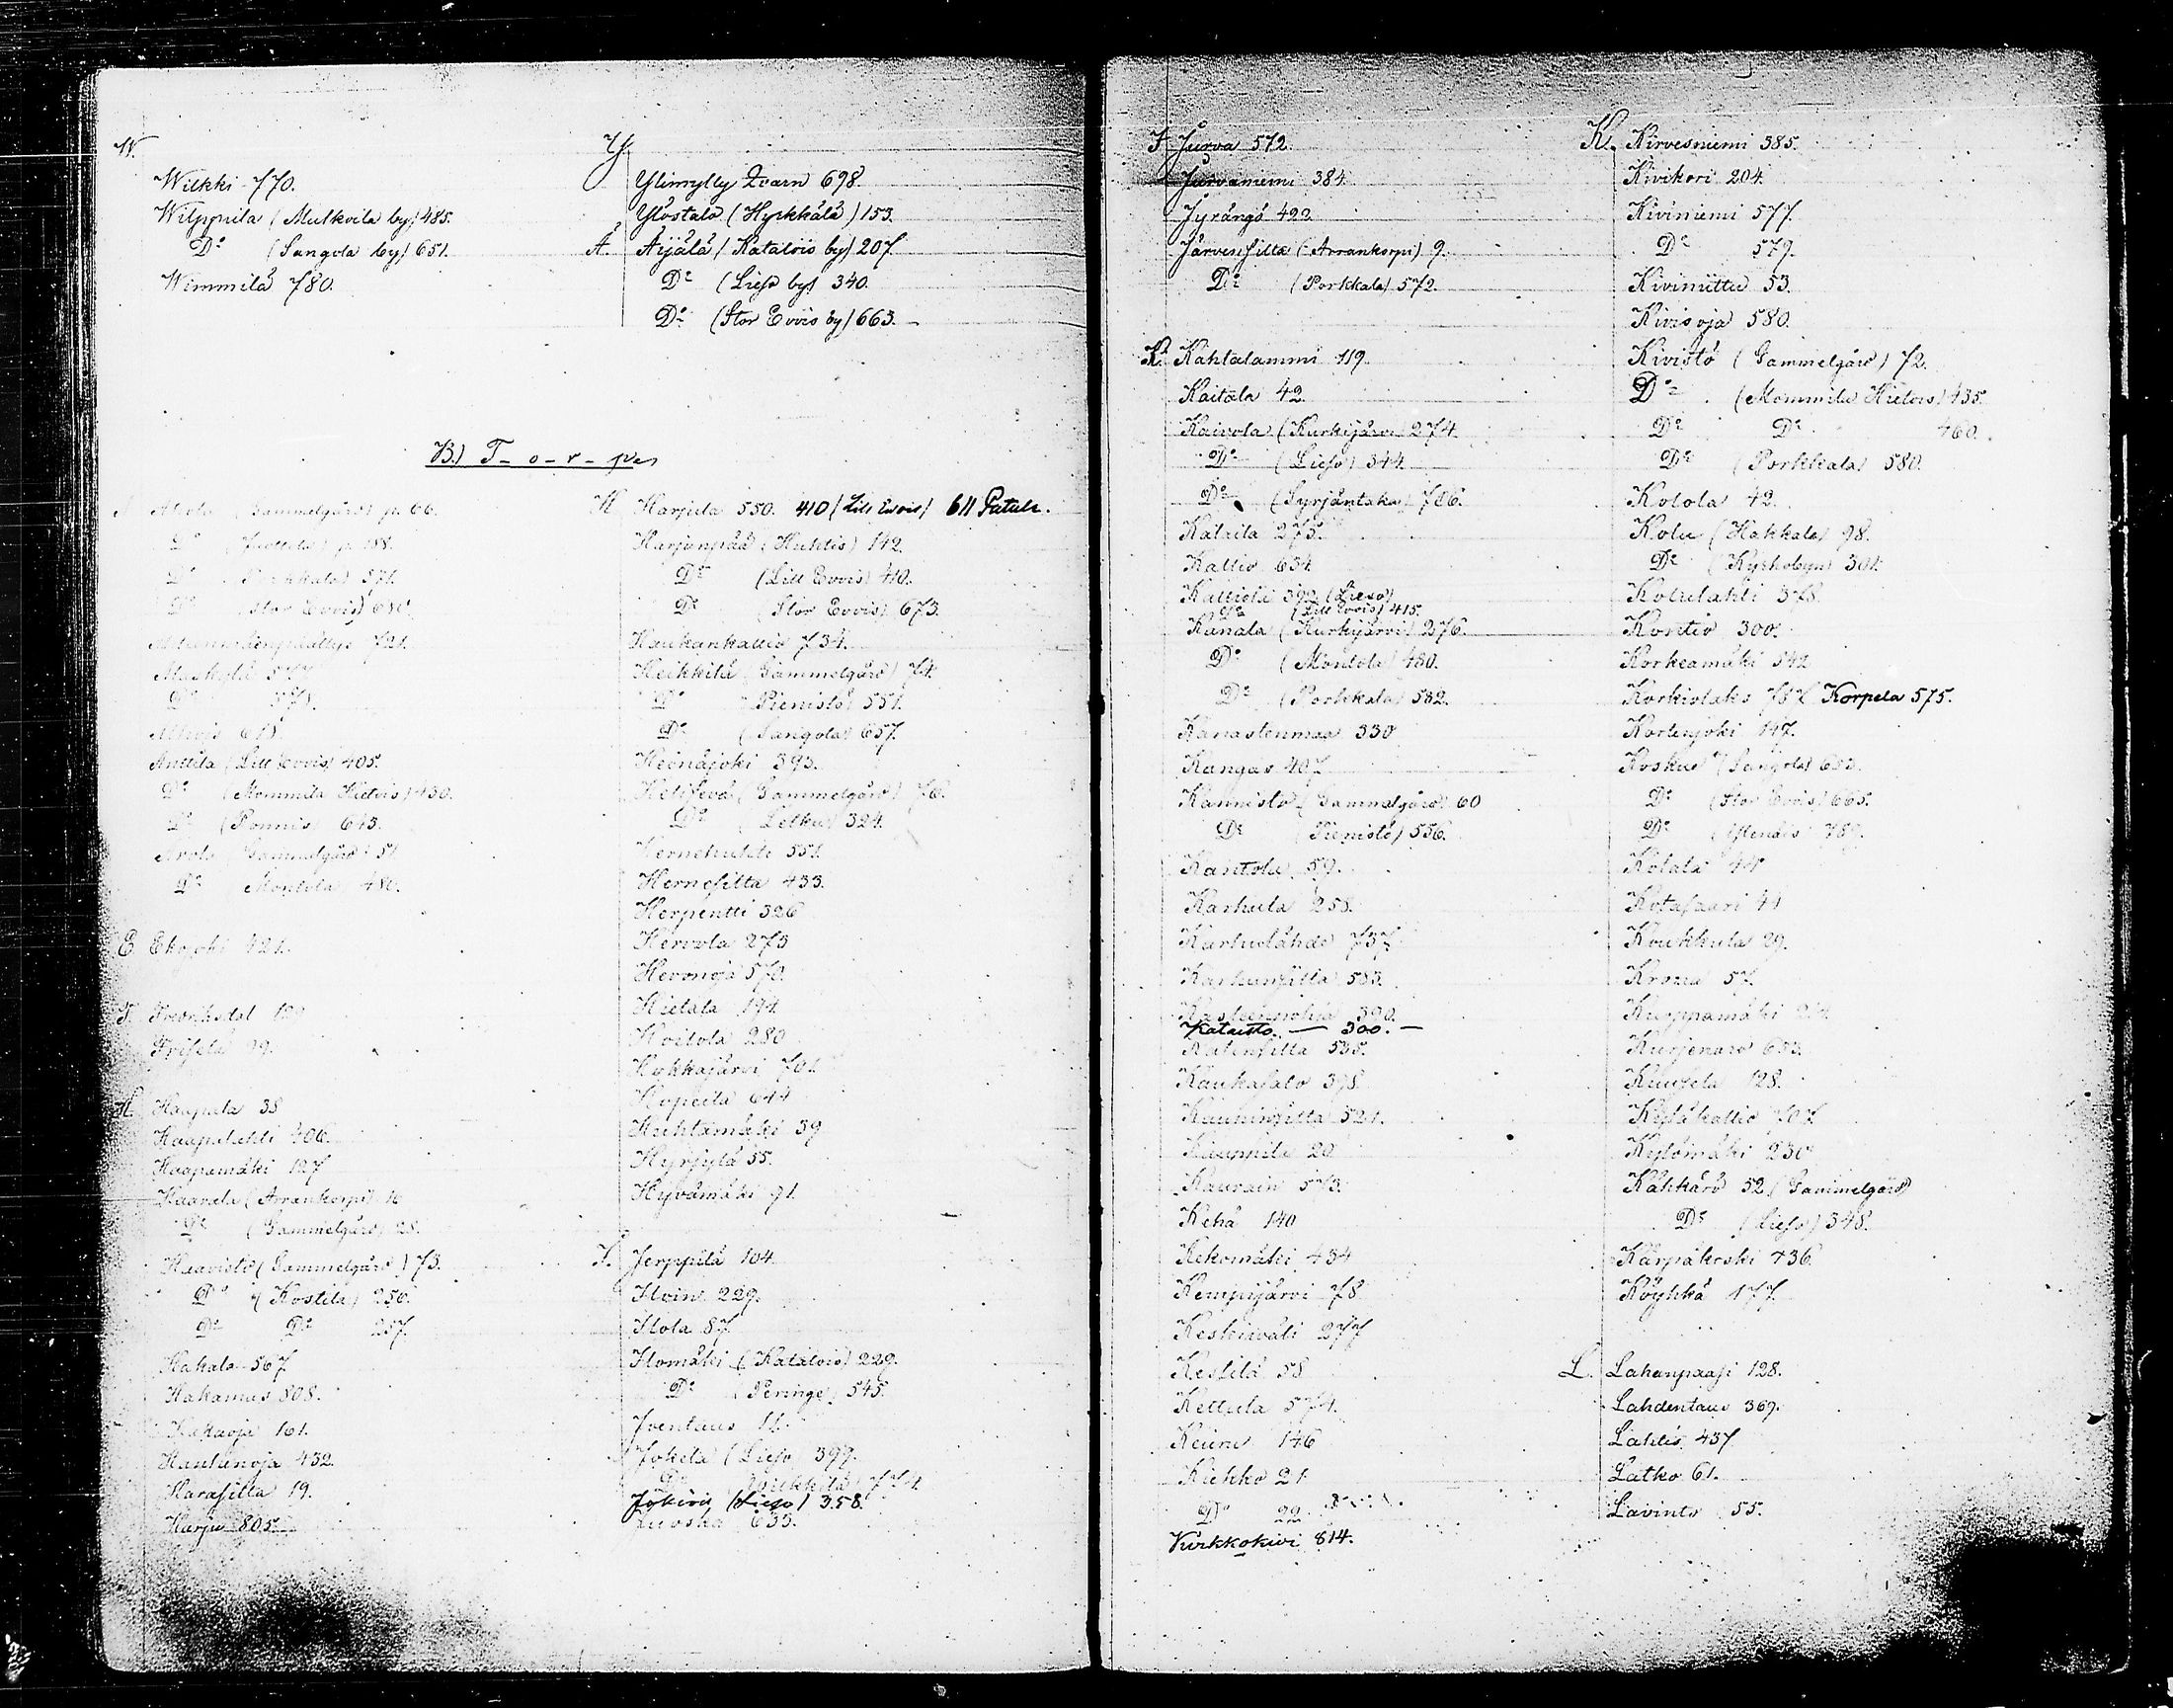 W.
Wilkki 770.
Wilppula (Mulkoila by) 485.
Do (Sangola by) 651.
Wimmilä 780.
Y
Ylimylly Qvarn 698.
Ylöstalo (Hyrkkälä) 153.
Ä.
Äijälä (Katalois by) 207.
Do (Lieso by) 340.
Do (Stor Evois by) 663.
B.) T-o-r-per
A
Ahola (Gammelgård) p. 66.
Do 188.
Do (Porkkala) 571.
Do (Stor Evois) 680.
721.
Do
Anttila (Lill Evois) 405.
Do (Mommila Hietois) 430.
Do (Ponnis) 643.
Arola (Gammelgård) 51.
Do Montola 480.
E
Ekojoki 421.
F.
Fredriksdal
29.
H.
Haapala 38
Haapalahti 406.
Haapamäki 127
Haavela (Arrankorpi) 16
Do (Gammelgård) 28.
Haavisto (Gammelgård) 73.
Do (Kostila) 256.
Do Do 257.
Hakala 567
Hakamas 808.
Hakaoja 161.
Hanhinoja 432.
Harasilta 19.
Harju 805.
H
Harjula 550. 410 (Lill Evois) 611 Patala.
Harjunpää (Huhtis) 142.
Do (Lill Evois) 410.
Do (Stor Evois) 673.
Haukankallio 734.
Heikkilä (Gammelgård) 74.
Do Pienistö 551.
Do (Sangola) 657.
Heinäjoki 393.
(Gammelgård) 76.
Do (Letku) 324.
Hernehuhta 551.
Hernesilta 433.
Herpentti 326
Hervola 273
Hevonoja 570.
Hietala 194.
Hoitola 280
Hokkajärvi 701.
Hopeila 644
Huhtamäki 39
Hyrsylä 55.
Hyvämäki 91.
I.
Jerppilä 104.
Iloin 229.
Ilola 87.
Ilomäki (Katalois) 229.
Do (Peninge) 545.
Joentaus 11.
Jokela (Lieso) 399.
Do 774
Jokioij (Lieso) 358.
633.
J
Jurva 572.
Jurvaniemi 384.
Jyrängö 422
Järvensilta (Arrankorpi) 9.
Do (Porkkala) 572.
K.
Kahtalammi 119.
Kaitala 42.
Kaivola (Kurkijärvi) 274.
Do (Lieso) 344.
Do (Syrjäntaka) 786.
Kalaila 275.
Kallio 634
Kalliola 392 (Lieso)
Do (Lill Evois) 415.
Kanala (Kurkijärvi) 276.
Do (Montola) 480.
Do (Porkkala) 582.
Kanastenmaa 330
Kangas 407
Kannisto (Gammelgård) 60
Do (Pienistö) 556.
Kantola 59.
Karhula 258.
Karhulähde 737.
Karhunsilta 583.
390.
Kataisto. — 300. —
535.
Kaukasalo 398.
Kauninsilta 521.
Kaunnila 20
Kaurain 573.
Kehä 140
Kekomäki 434
Kempijärvi 78
Keskiväli 277
Kestilä 58
Kettula 574.
Keiuru 146
Kiekko 21
Do 22
Kirkkokivi 814.
K.
Kirvesniemi 385.
Kivikori 204.
Kiviniemi 577.
Do 579.
Kiviniittu 53.
Kivisoja 580.
Kivistö (Gammelgård) 72.
Do (Mommila Hietois) 435.
Do Do 460.
Do (Porkkala) 580.
Kolola 42.
Kolu (Hakkala) 98.
Do (Kyrkobyn) 301.
Kolulahti 378.
Kontio 300.
Korkeamäki 542
Korkiotaks 787 Korpela 575.
Kortenjoki 147.
Koskue (Sangola) 652.
Do (Stor Evois) 665.
Do 789.
Kotala 44
Kotasaari 41
Koukkula 29.
Kroma 57.
Kurppamäki 24
Kurjenaro 653.
Kuusela 128.
Kyläkallio 707.
Kylömäki 230
Kähkärö 52 (Gammelgård)
Do (Lieso) 348.
Kärpäkoski 436.
Köyhkä 177.
L.
Lahanpaasi 128.
Lahdentaus 369.
Lahtis 437.
Latko 61.
Lavinto 55.